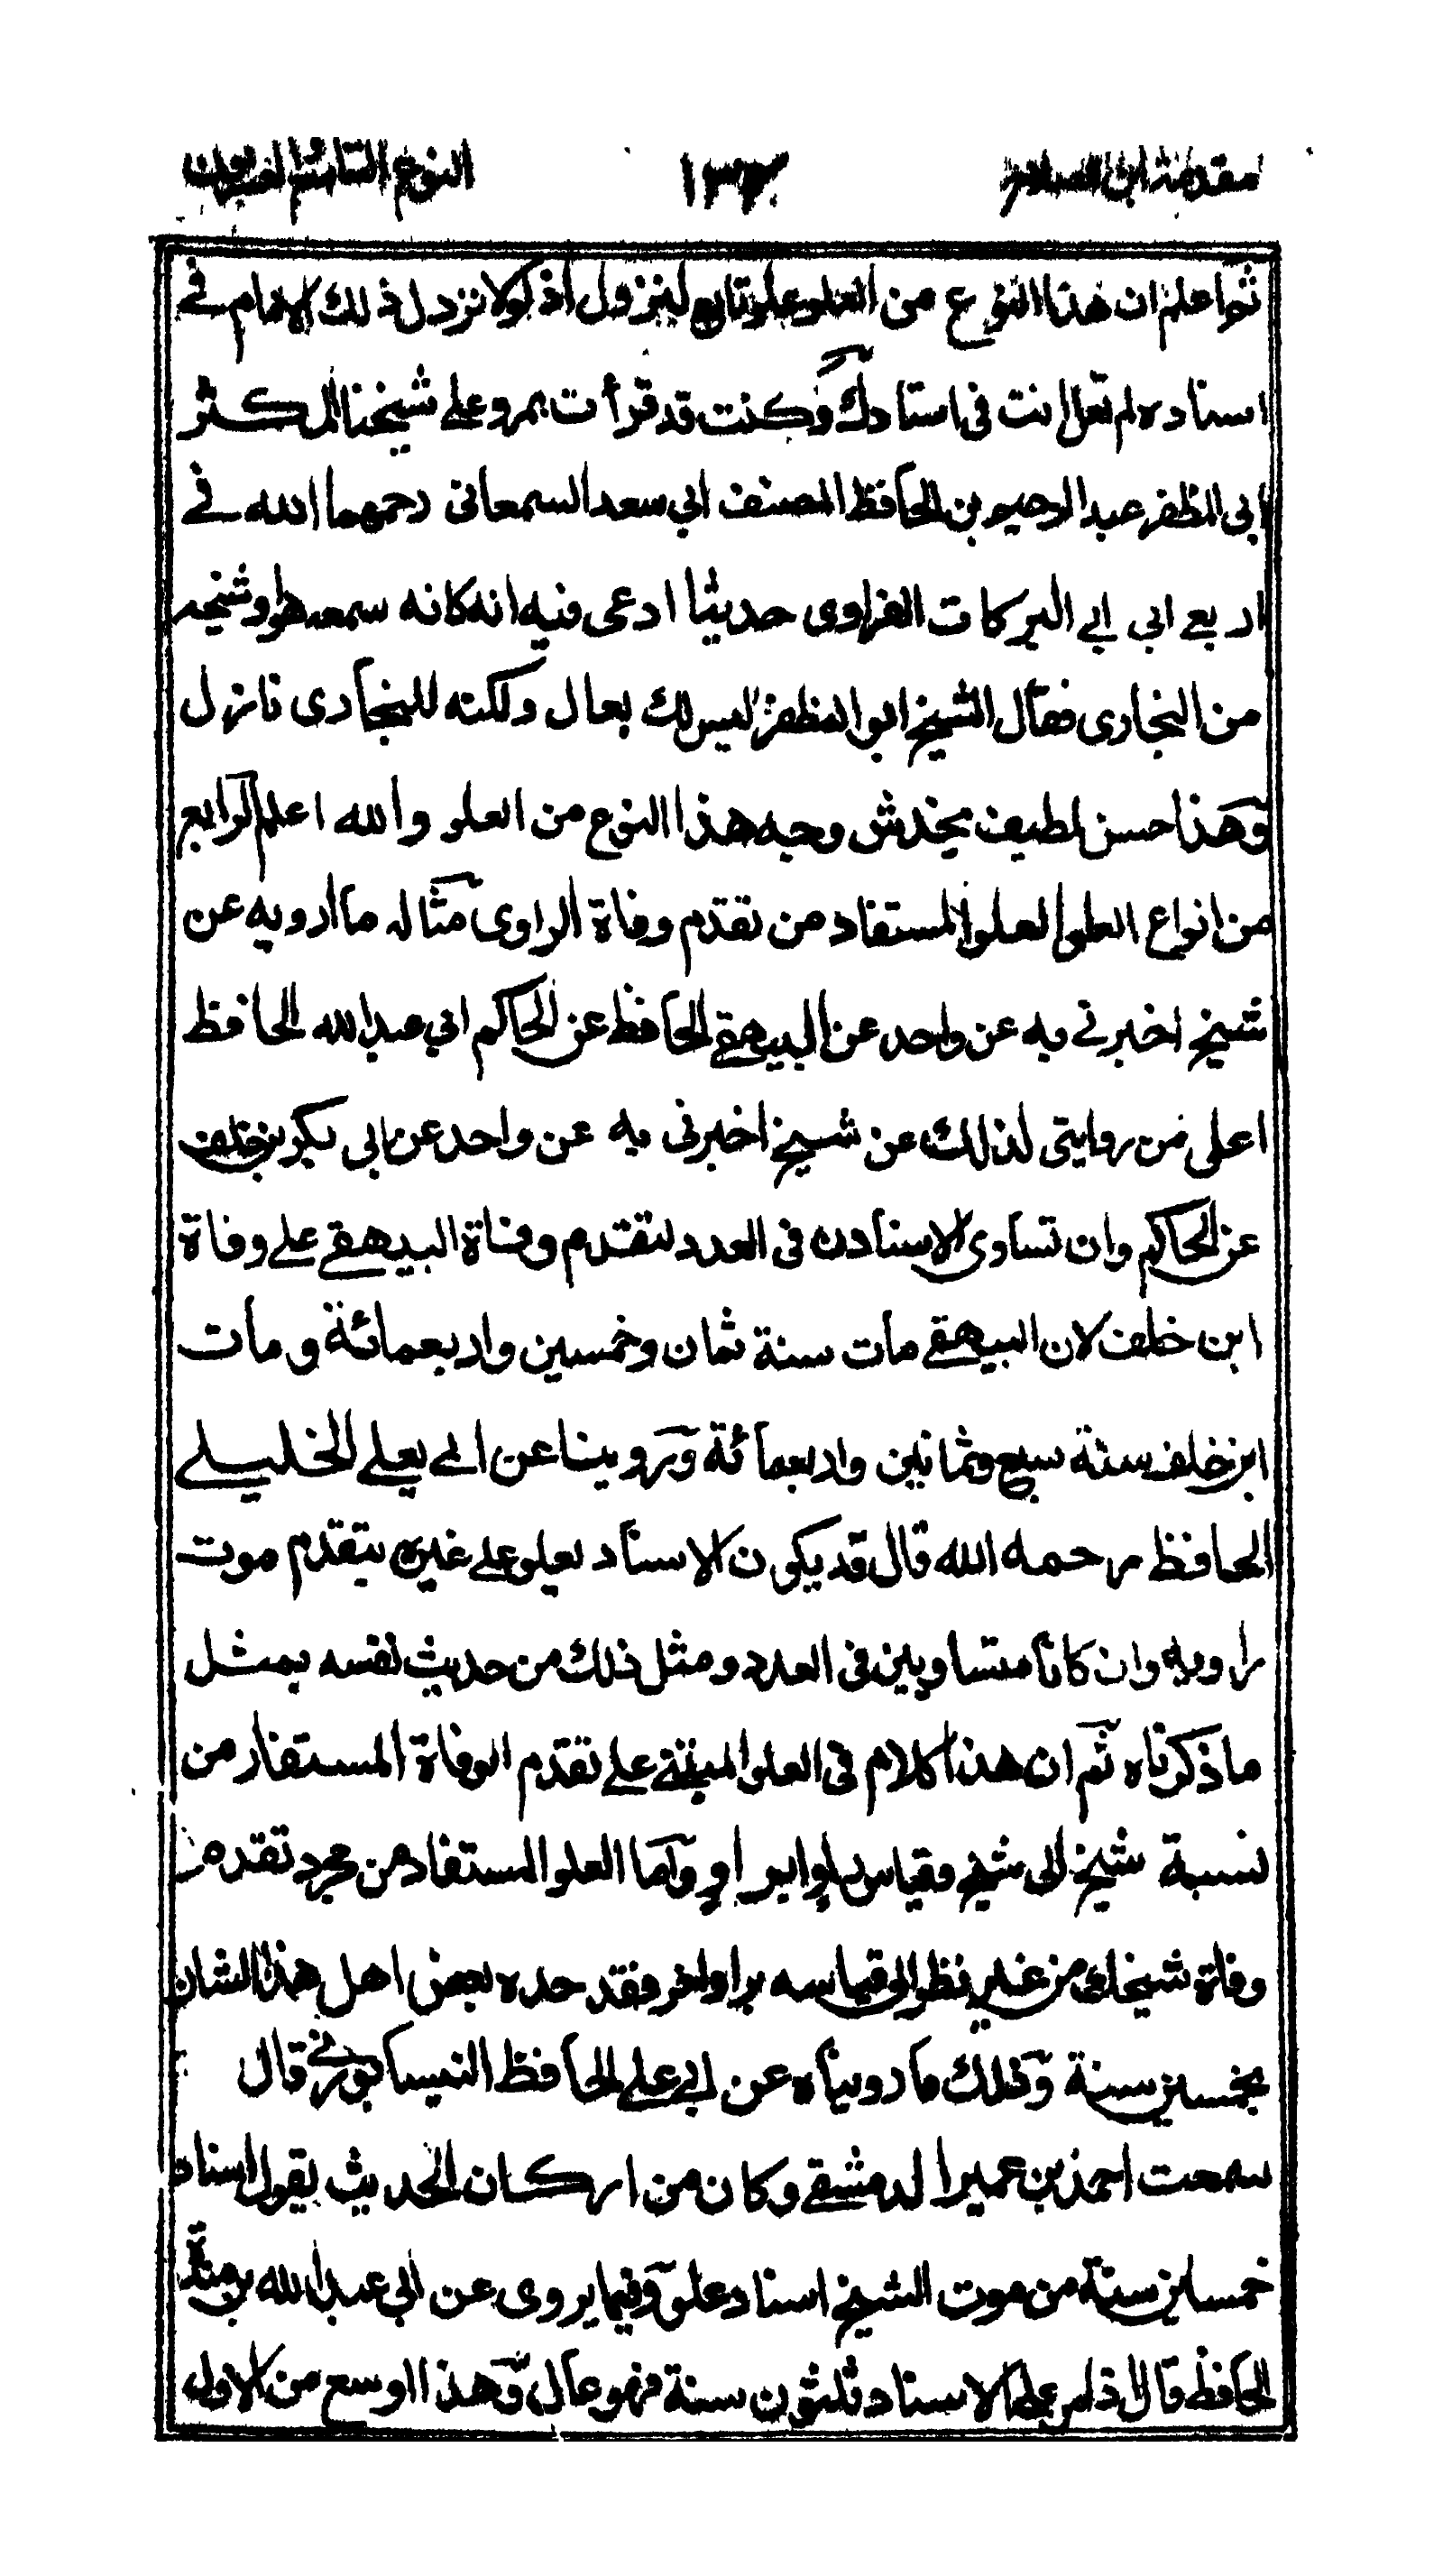 مقدمة ابن الصلاح ١٣٢ النوع التاسع والعشرون
ثم اعلم ان هذا النوع من العلو علو تابع لنزول اذ لولا نزول ذلك الامام في
اسناده لم تعل انت في اسنادك وكنت قد قرأت بمرو على شيخنا المكثر
ابي المظفر عبد الرحيم بن الحافظ المصنف ابي سعد السمعاني رحمهما الله في
اربعي ابي البركات الفراوي حديثا ادعى فيه انه كانه سمعه هو او شيخه
من البخاري فقال الشيخ ابو المظفر ليس لك بعال ولكنه للبخاري نازل
وهذا حسن لطيف يخدش وجه هذا النوع من العلو والله اعلم الرابع
من انواع العلو العلو المستفاد من تقدم وفاة الراوي مثاله ما ارويه عن
شيخ اخبرني به عن واحد عن البيهقي الحافظ عن الحاكم ابي عبد الله الحافظ
اعلى من روايتي لذلك عن شيخ اخبرني به عن واحد عن ابي بكر بن خلف
عن الحاكم وان تساوى الاسنادان في العدد لتقدم وفاة البيهقي على وفاة
ابن خلف لان البيهقي مات سنة ثمان وخمسين واربعمائة ومات
ابن خلف سنة سبع وثمانين واربعمائة وروينا عن ابي يعلى الخليلي
الحافظ رحمه الله قال قد يكون الاسناد يعلو على غيره بتقدم موت
راويه وان كانا متساويين في العدد ومثل ذلك من حديث نفسه بمثل
ما ذكرناه ثم ان هذا كلام في العلو المبتني على تقدم الوفاة المستفاد من
نسبة شيخ الى شيخ وقياس راو براو واما العلو المستفاد من مجرد تقدم
وفاة شيخك من غير نظر الى قياسه براو اخر فقد حده بعض اهل هذا الشان
بخمسين سنة وذلك ما رويناه عن ابي علي الحافظ النيسابوري قال
سمعت احمد بن عمير الدمشقي وكان من اركان الحديث يقول اسناد
خمسين سنة من موت الشيخ اسناد علو وفيما يروى عن ابي عبد الله بن مندة
الحافظ قال اذا مر على الاسناد ثلثون سنة فهو عال وهذا اوسع من الاول